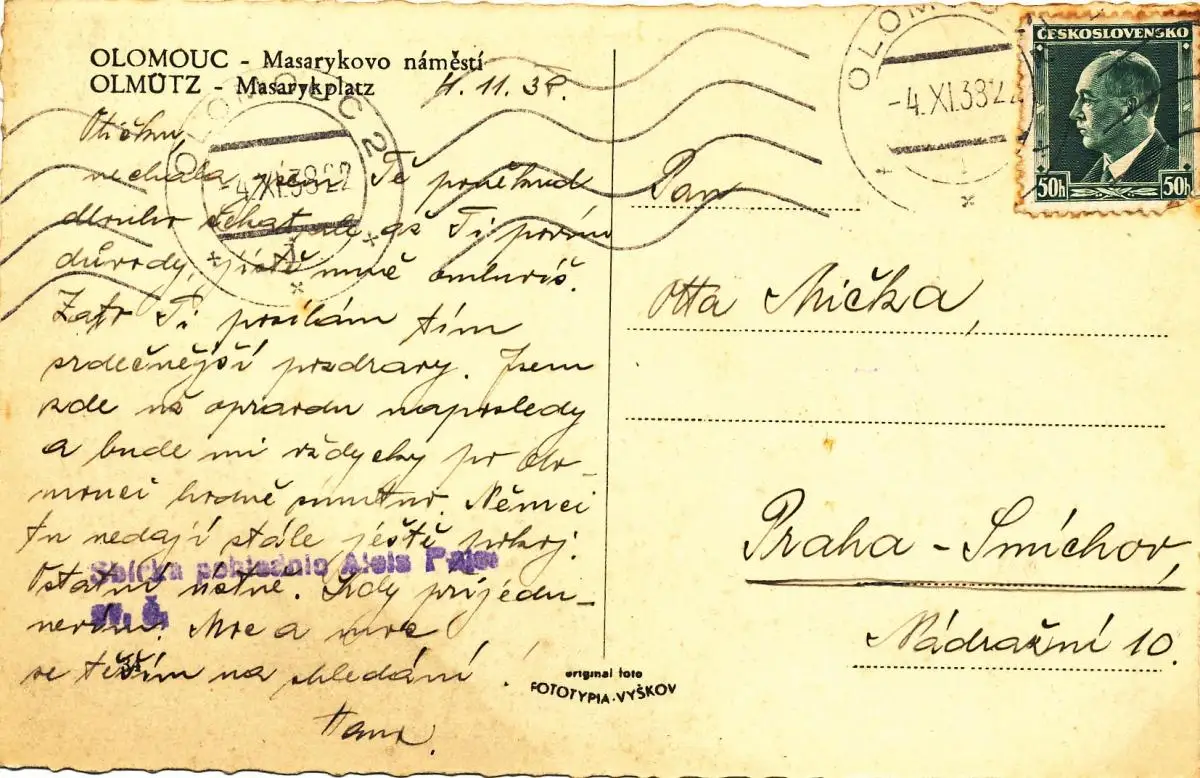 OLOMOUC - Masarykovo náměstí
OLMÜTZ - Masarykplatz
4.11.38.
Otíčku,
nechala jsem Tě poněkud
dlouho čekat, ale až Ti povím
důvody, jistě mně omluvíš.
Zato Ti posílám tím
srdečnější pozdravy. Jsem
zde už opravdu naposledy
a bude mi vždycky po Olo-
mouci hodně smutno. Němci
tu nedají stále ještě pokoj.
Ostatní ústně. Kdy přijedu-
nevím. Moc a moc
se těším na shledání!
Hana.
OLOMOUC 2
-4.XI.38 22
OLOMOUC
-4.XI.38 22
1
ČESKOSLOVENSKO
50h 50h
Pan
Otta Mička,
Praha - Smíchov,
Nádražní 10.
Sbírka pohlednic Alois
original foto
FOTOTYPIA-VYŠKOV